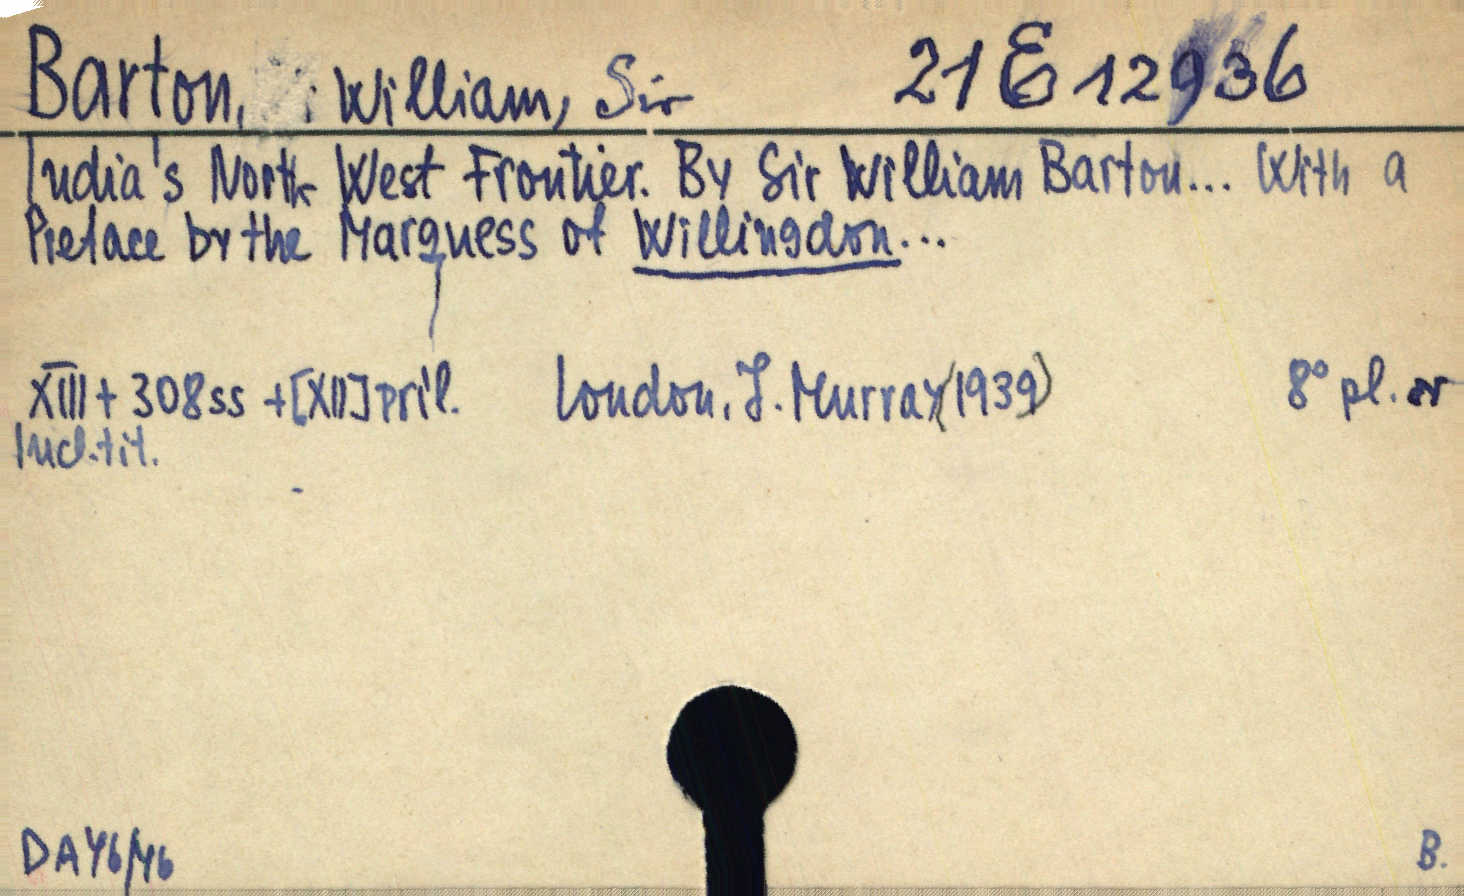 Barton, William, Sir 21 E 12936
India's North West Frontier. By Sir William Barton... With a
Preface by the Marquess of Willingdon...
XIII + 308 ss + [XII] pril. London, J. Murray (1939) 8° pl. or
Incl. tit.
DA 46/46 B.